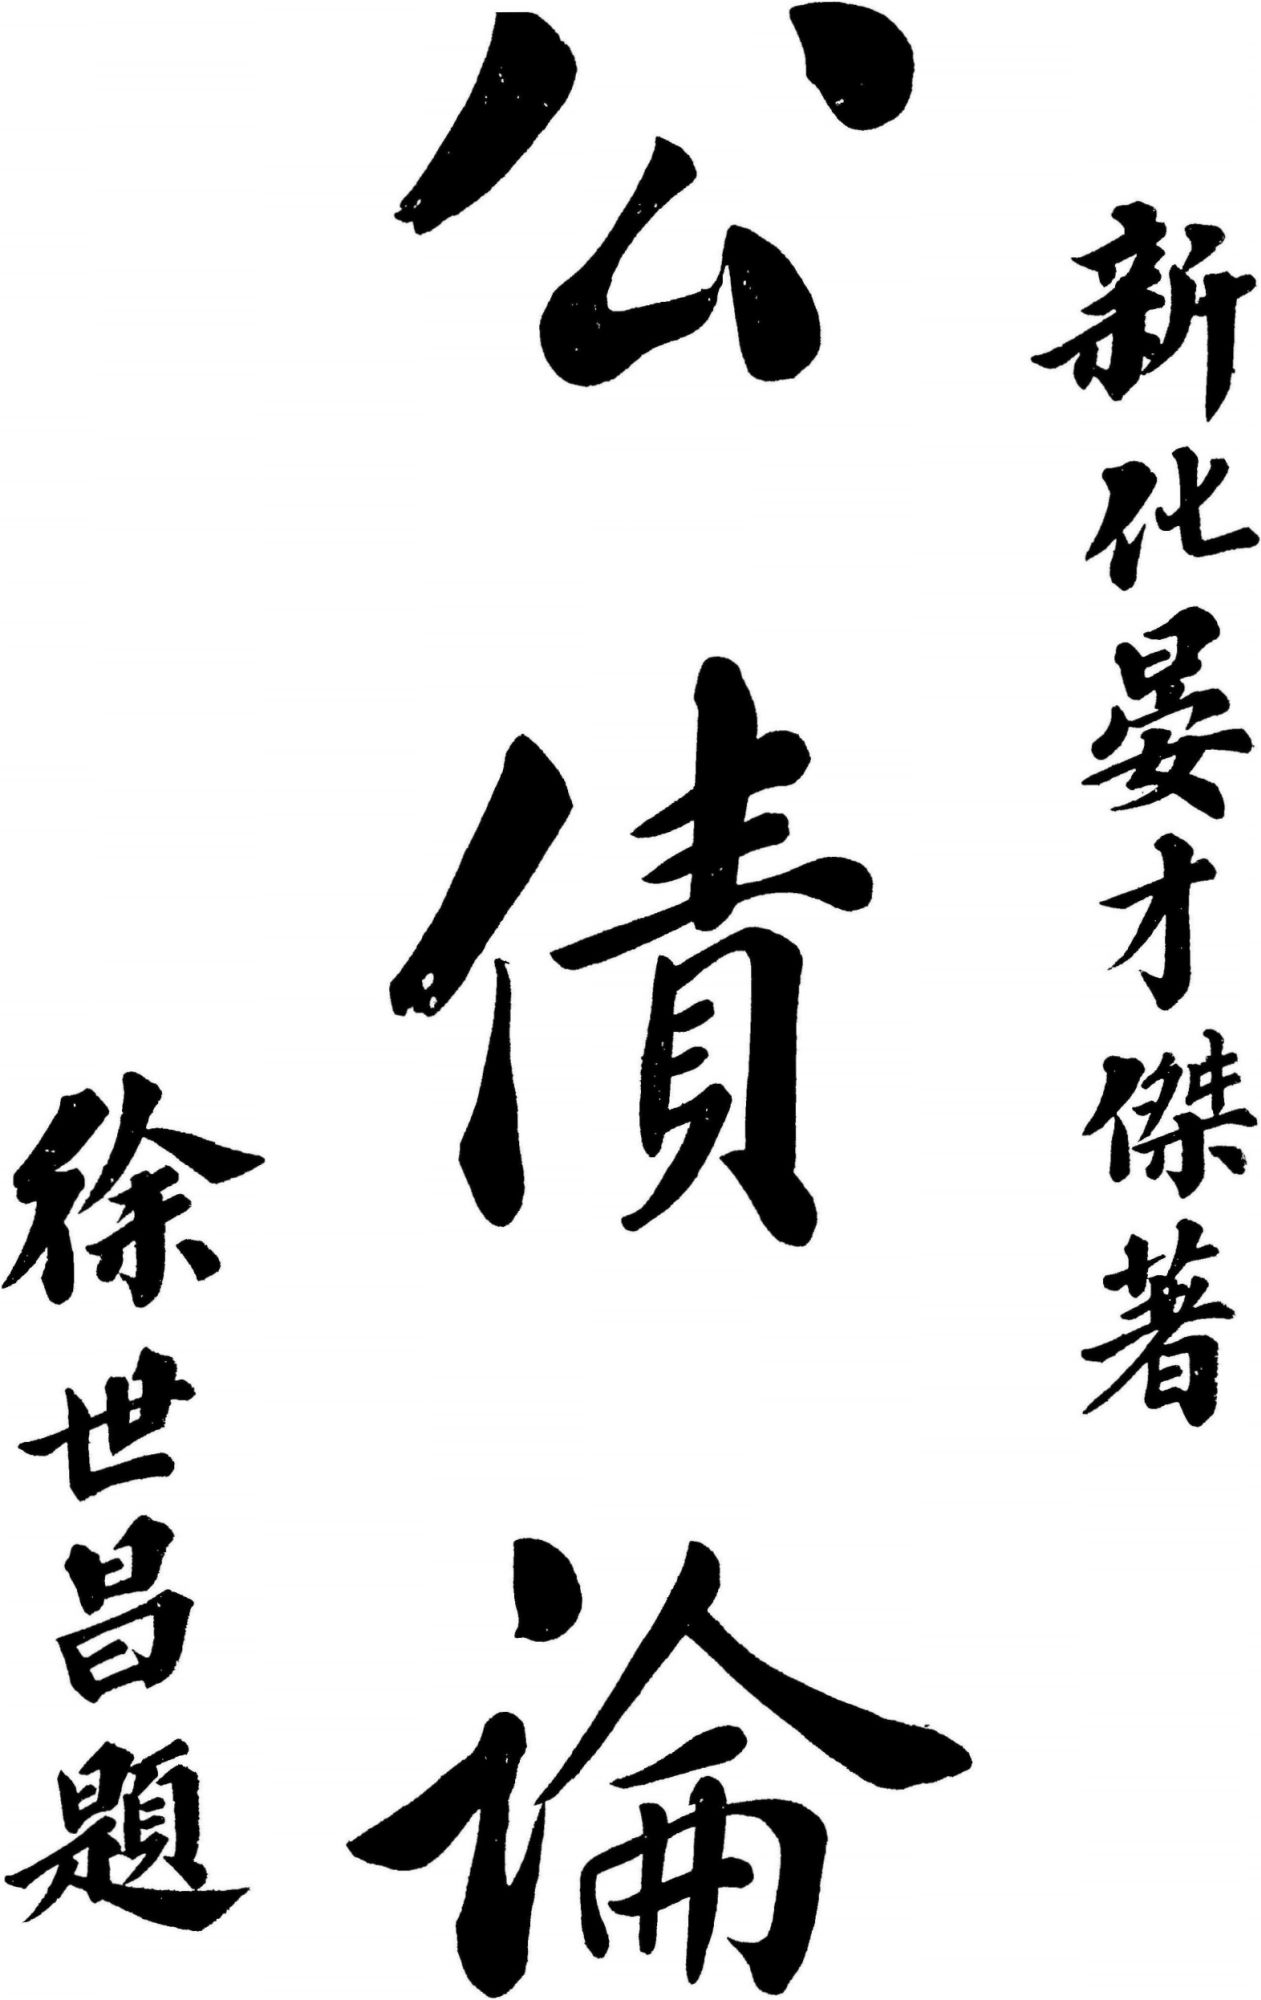 新化晏才傑著
公債論
徐世昌題